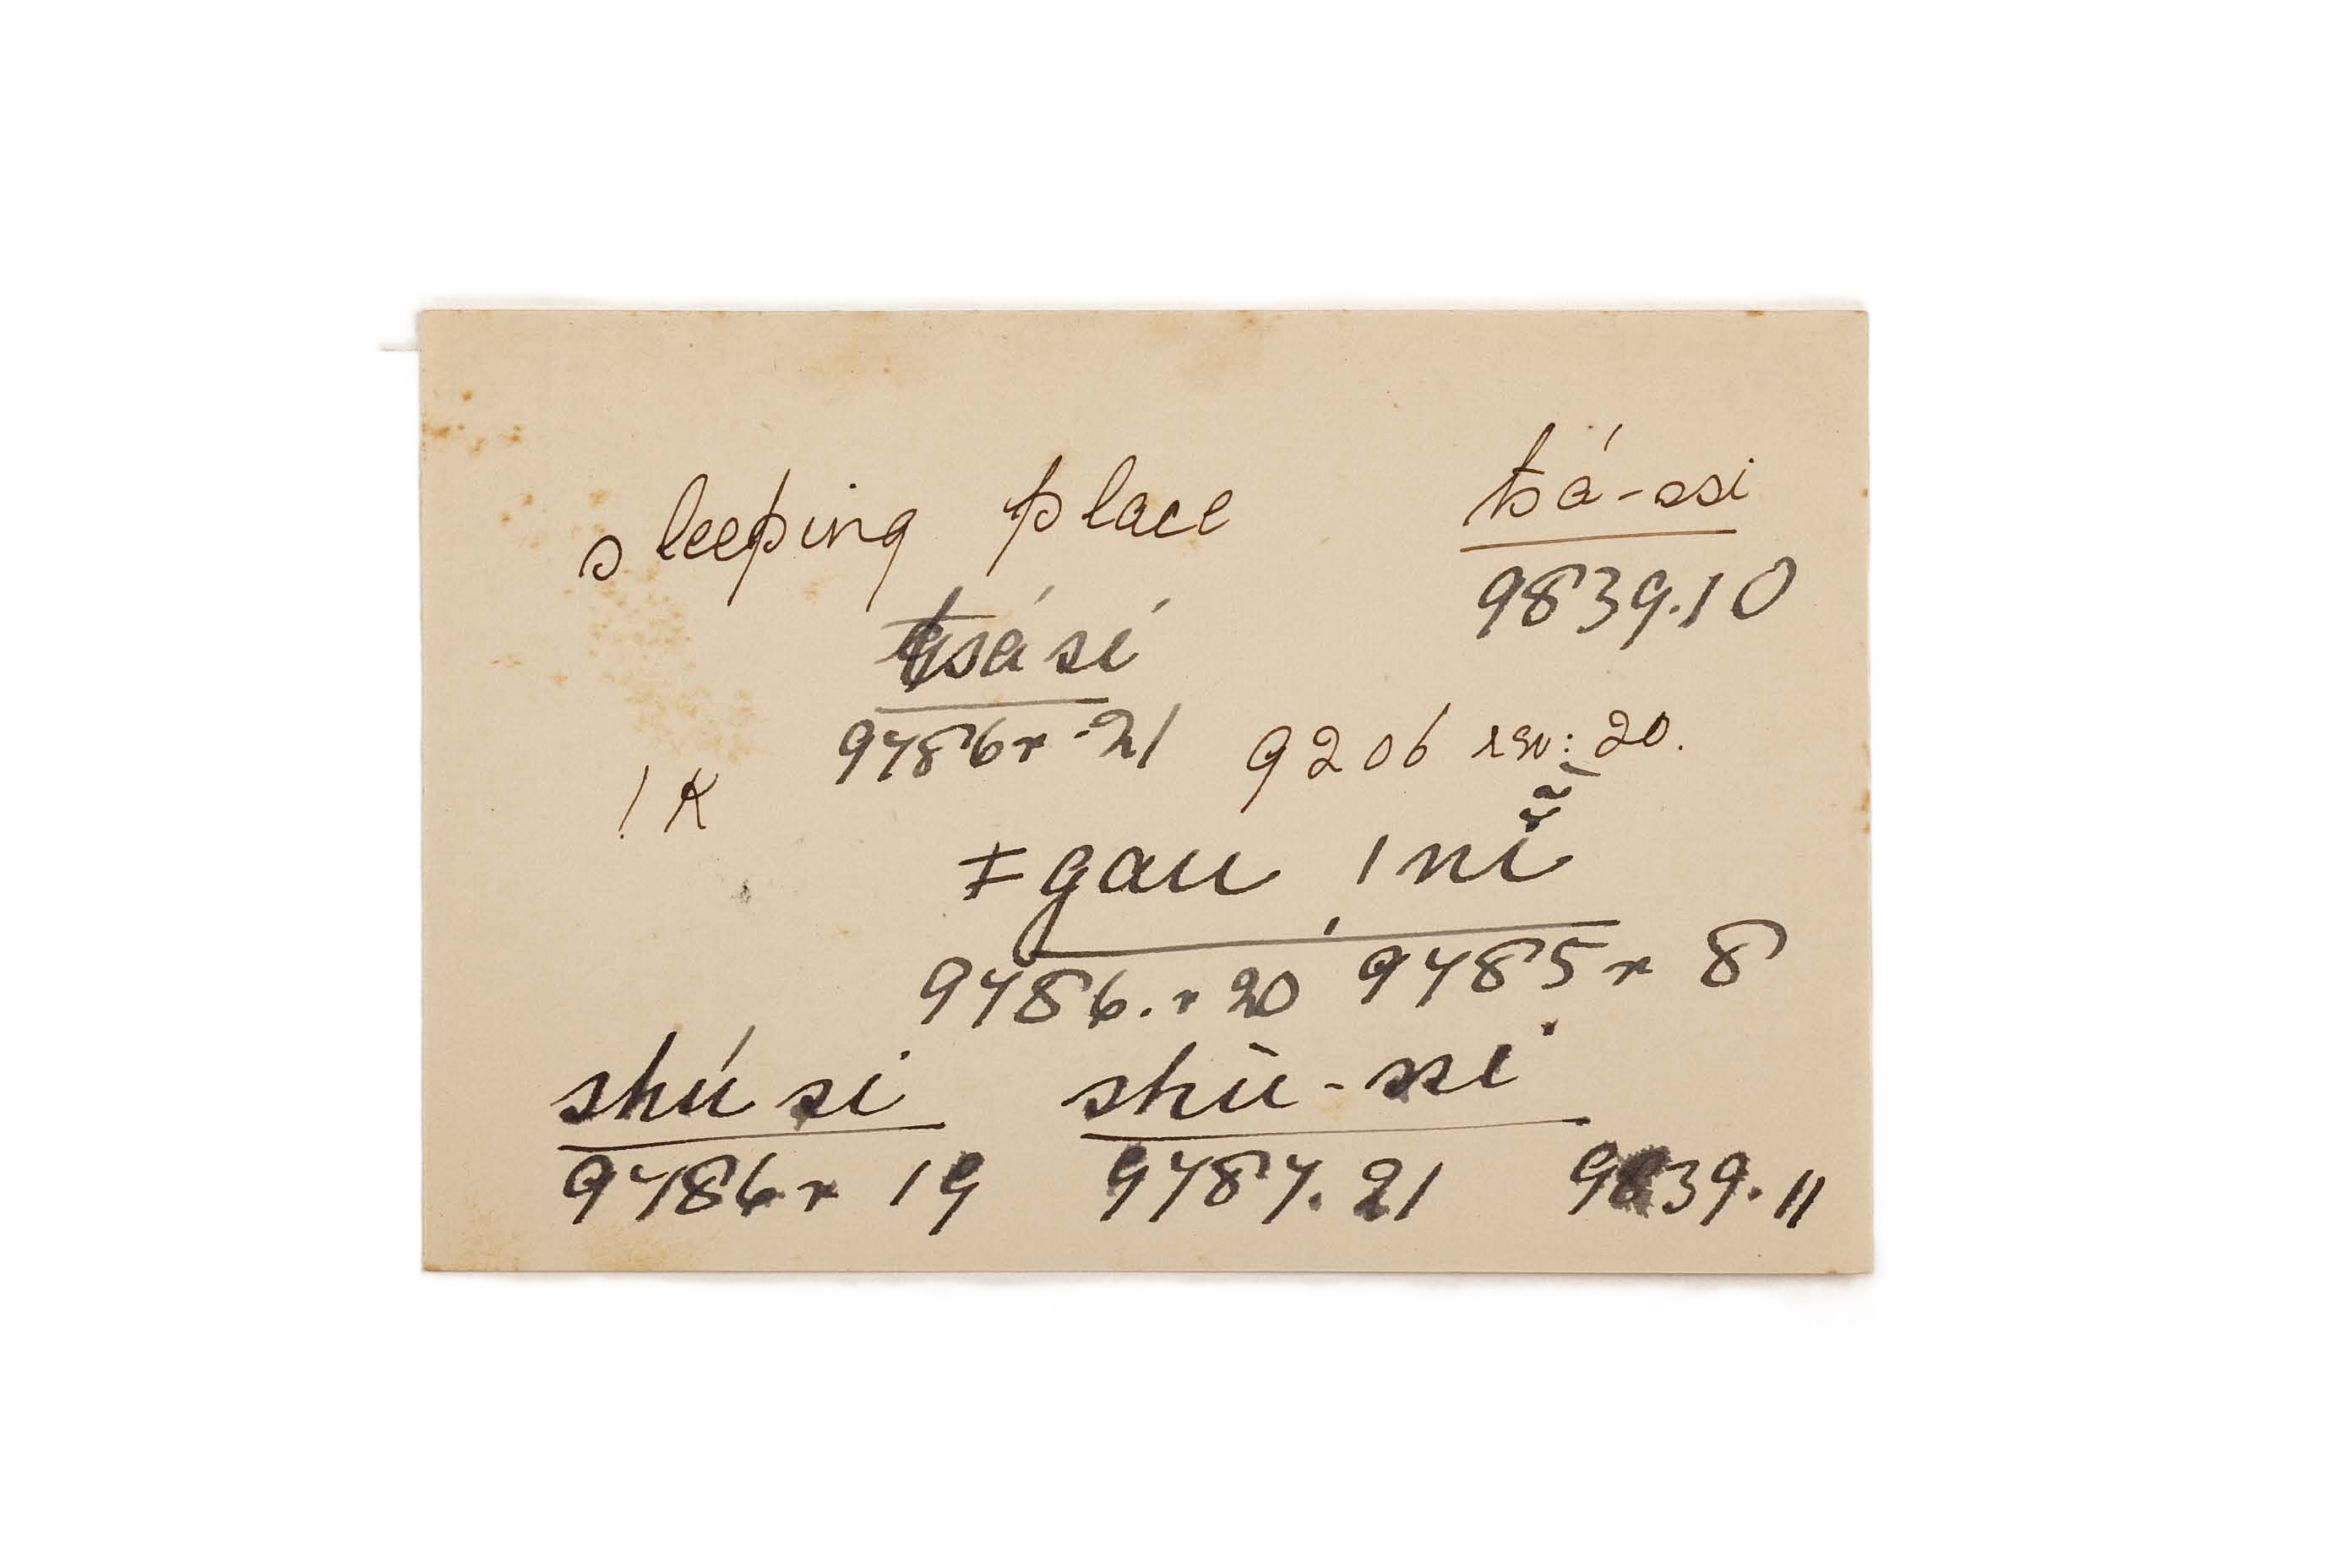 sleeping place tsá-ssi
9839.10
tsá sí
9786r 21 9206 rev: 20.
!k
ǂgau !nĩ̆
9786.r 20 9785r 8
shú si shù-ssi
9786r 19 9787.21 9839.11